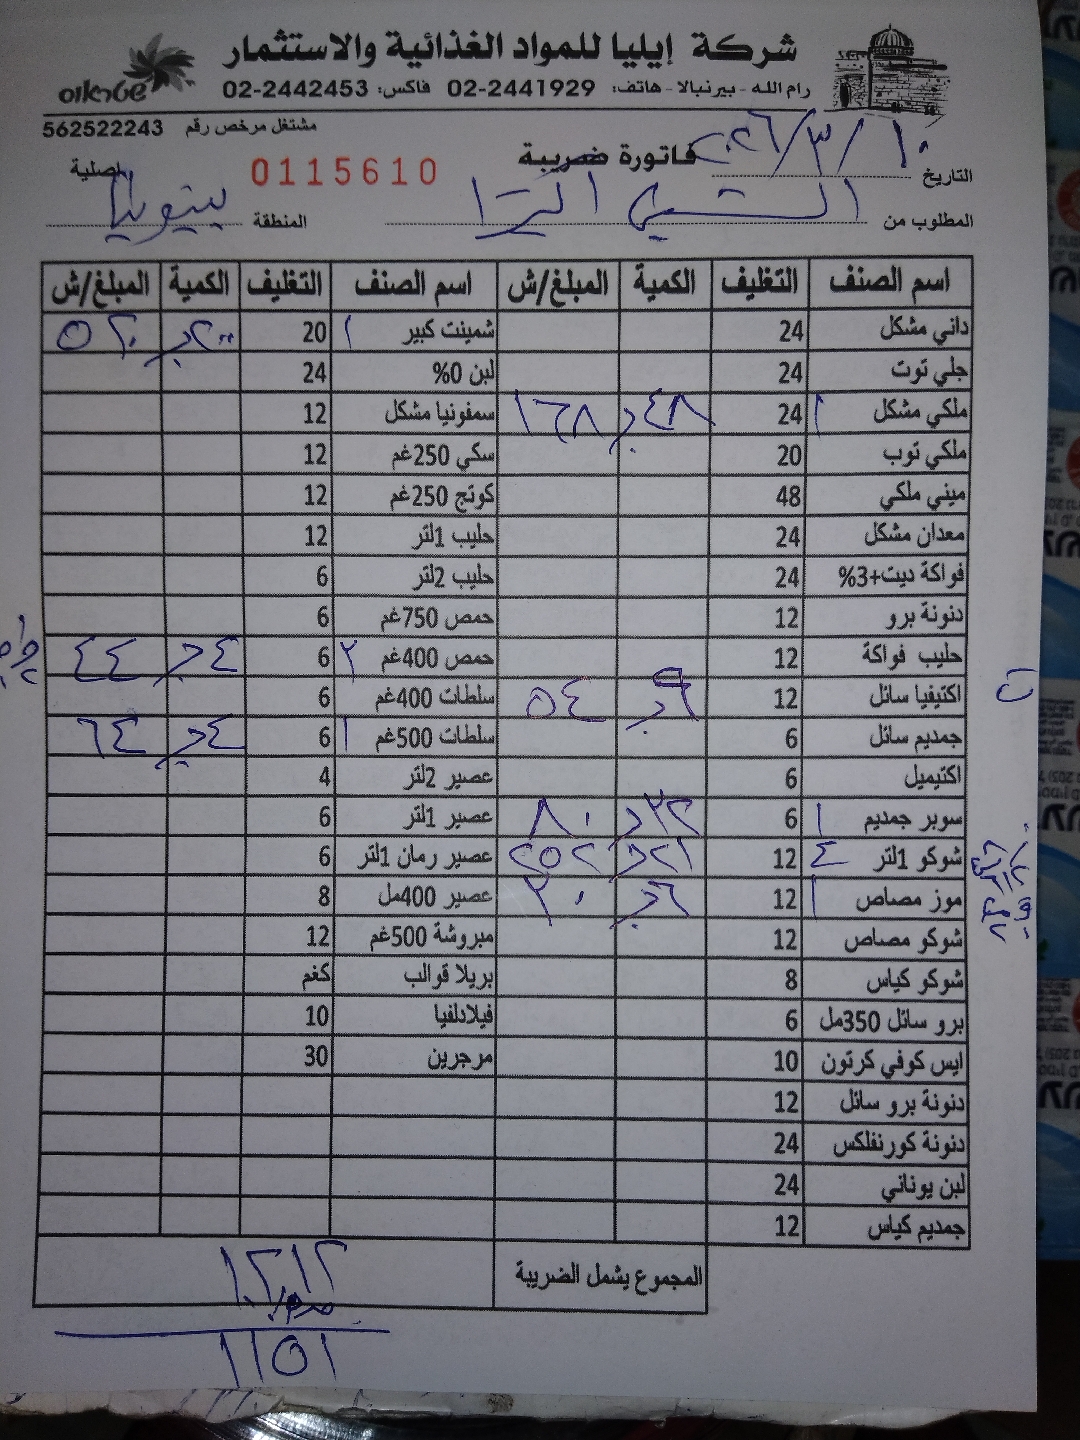 شركة إيليا للمواد الغذائية والاستثمار
رام الله - بيرنبالا - هاتف: 02-2441929 فاكس: 02-2442453
مشتغل مرخص رقم 562522243
التاريخ ١٠/٣/٢٠٢٦ فاتورة ضريبة 0115610 اصلية
المطلوب من المنطقة
اسم الصنف التغليف الكمية المبلغ/ش اسم الصنف التغليف الكمية المبلغ/ش
داني مشكل 24 شمينت كبير ١ 20 ٥٢٠
جلي توت 24 لبن 0% 24
ملكي مشكل ١ 24 ٤٨ ١٦٨ سمفونيا مشكل 12
ملكي توب 20 سكي 250غم 12
ميني ملكي 48 كوتج 250غم 12
معدان مشكل 24 حليب 1لتر 12
فواكة ديت+3% 24 حليب 2لتر 6
دنونة برو 12 حمص 750غم 6
حليب فواكة 12 حمص 400غم ٢ 6 ٤ ٤٤
اكتيفيا سائل 12 ٩ ٥٤ سلطات 400غم 6
جمديم سائل 6 سلطات 500غم ١ 6 ٤ ٦٤
اكتيميل 6 عصير 2لتر 4
سوبر جمديم ١ 6 ٨٠ عصير 1لتر 6
شوكو 1لتر ٤ 12 ٢١ ٢٥٢ عصير رمان 1لتر 6
موز مصاص ١ 12 ٦ ٣٠ عصير 400مل 8
شوكو مصاص 12 مبروشة 500غم 12
شوكو كياس 8 بريلا قوالب كغم
برو سائل 350مل 6 فيلادلفيا 10
ايس كوفي كرتون 10 مرجرين 30
دنونة برو سائل 12
دنونة كورنفلكس 24
لبن يوناني 24
جمديم كياس 12
المجموع يشمل الضريبة ١٢١٢
١١٥١